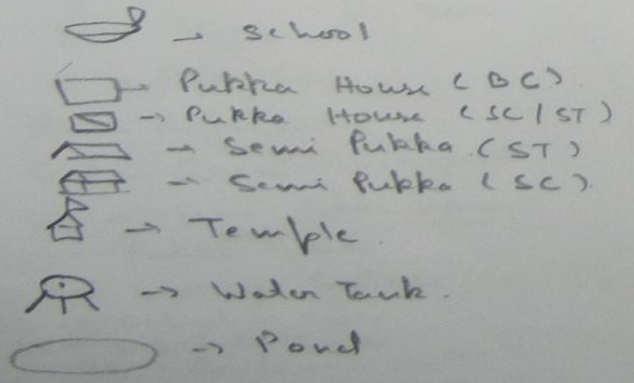 → School
→ Pukka House (BC)
→ Pukka House (SC/ST)
→ Semi Pukka (ST)
→ Semi Pukka (SC)
→ Temple.
→ Water Tank.
→ Pond